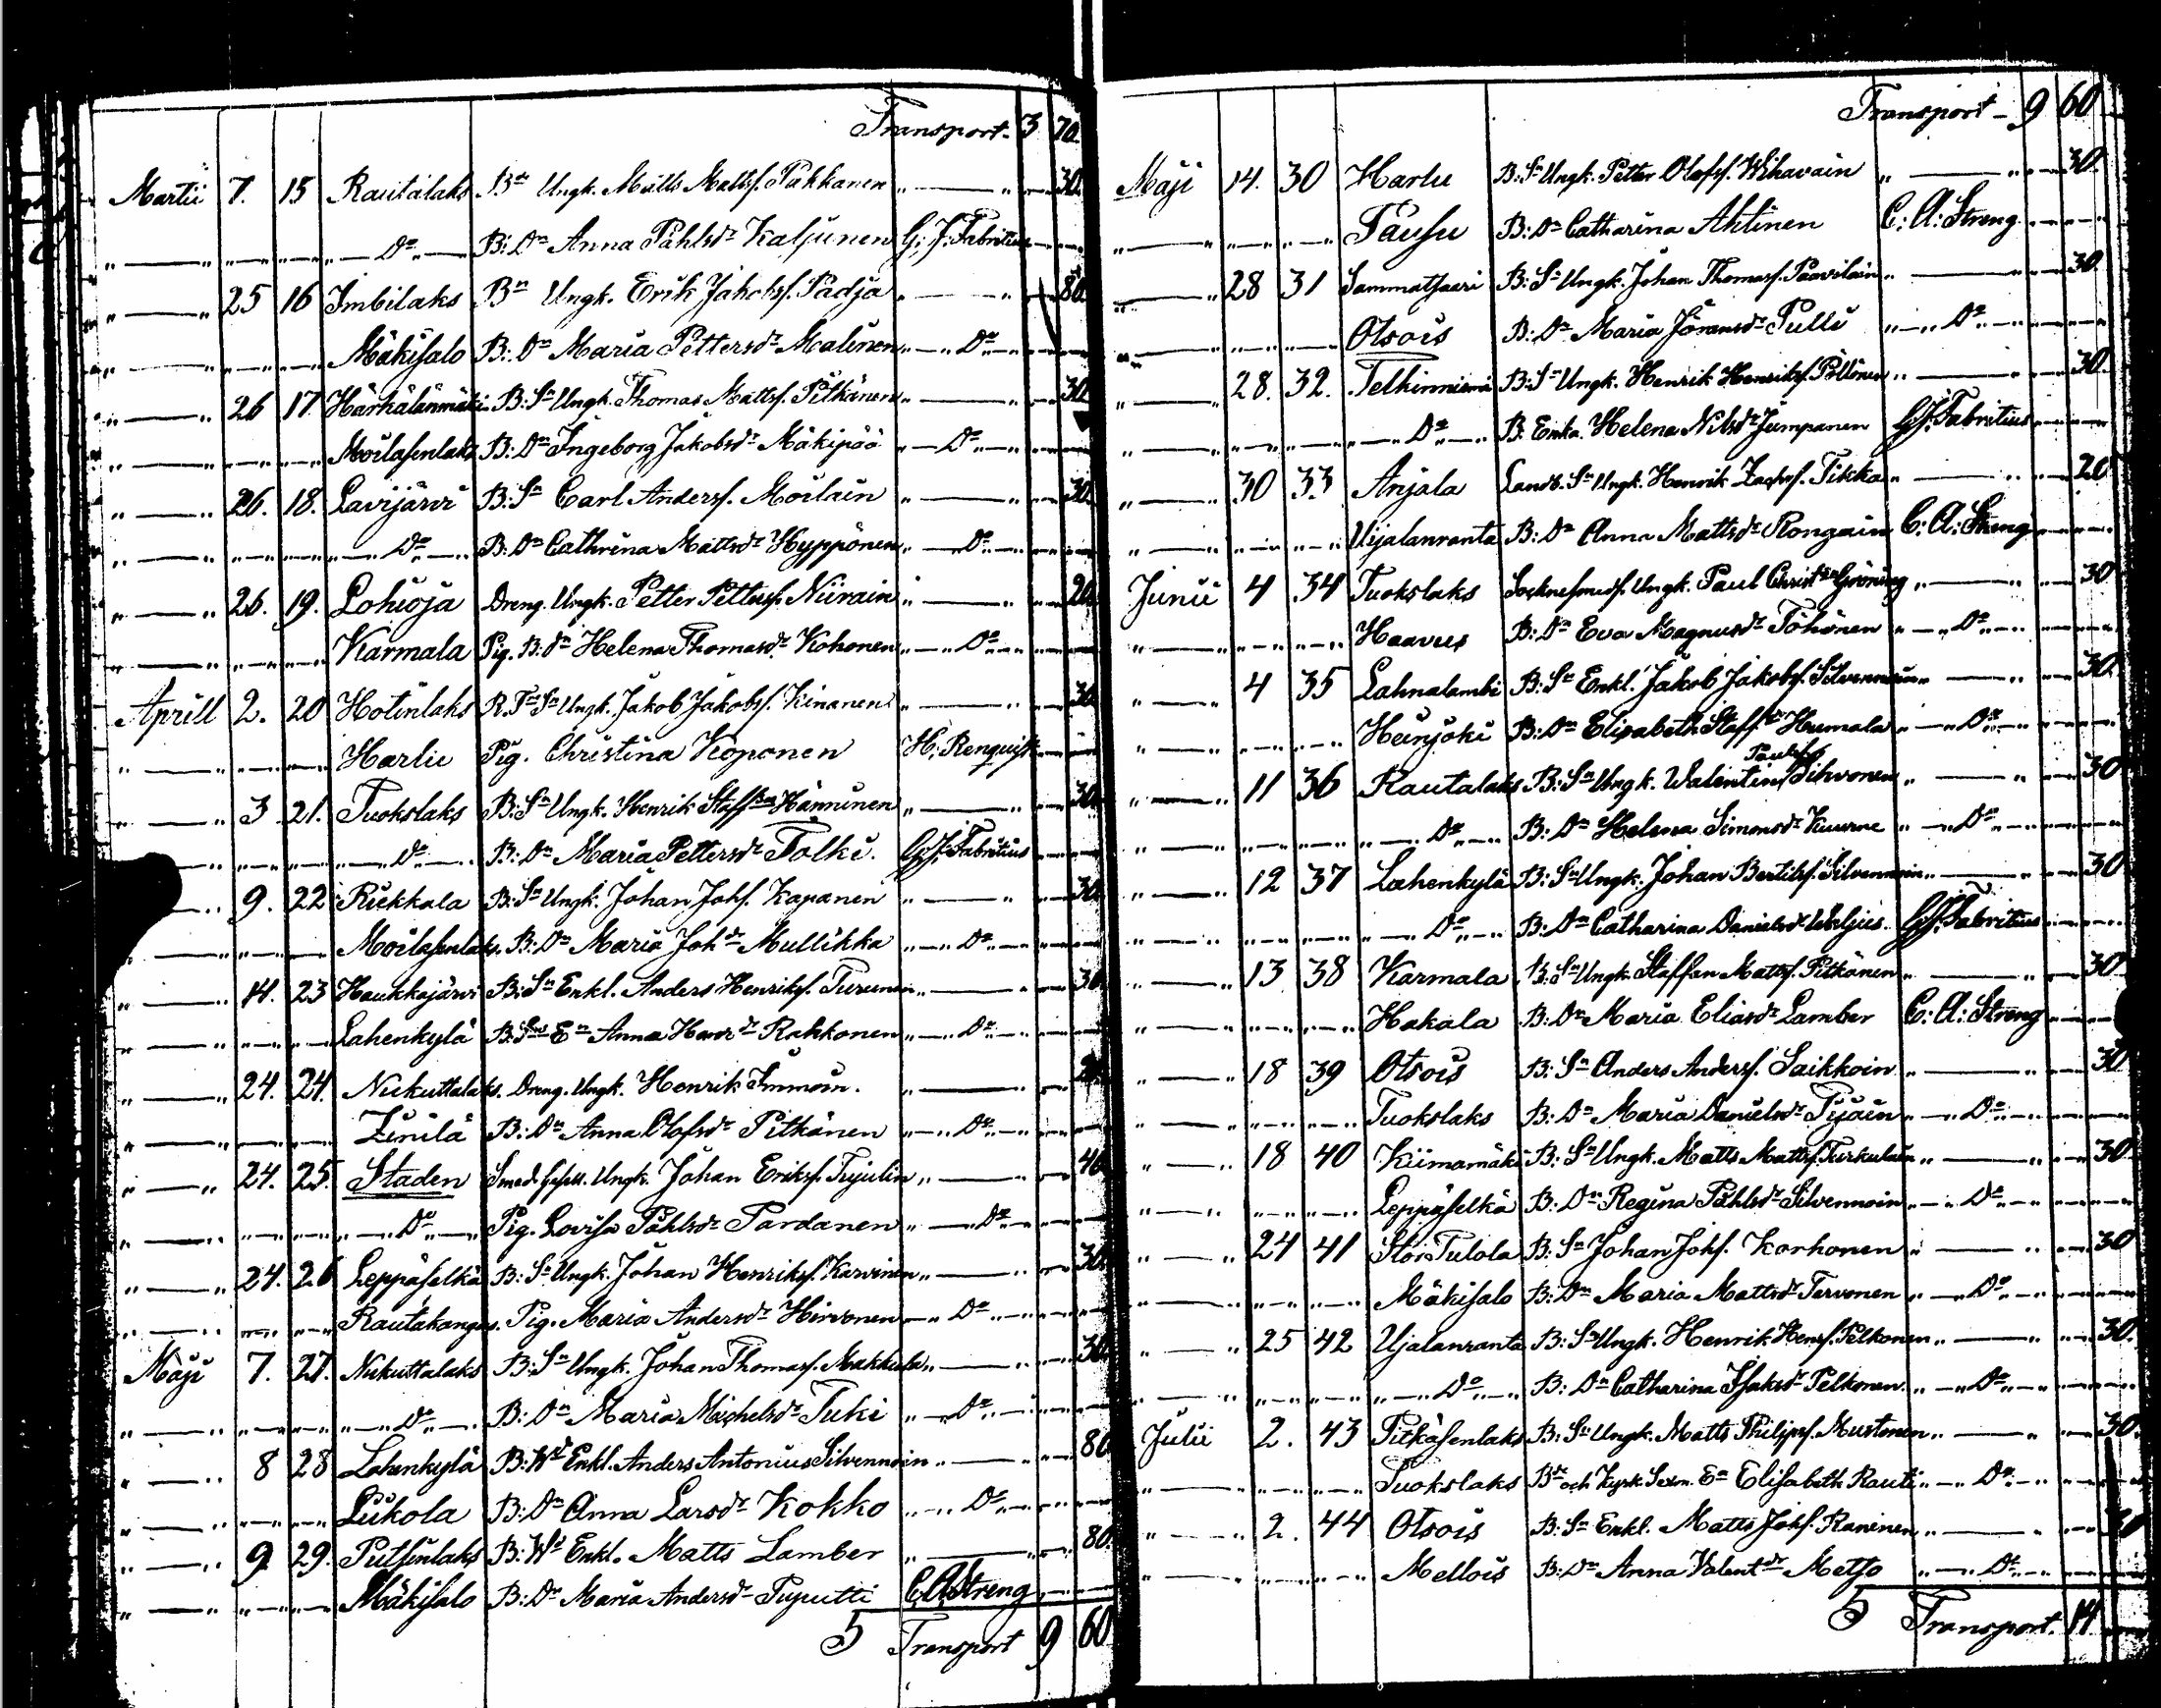 Transport 3 70
Martii 7. 15 Rautalaks Bde Ungk. Matts Mattss. Pakkanen „ — „ 30.
„ — „ Do B: Dn Anna Påhlsdr Kaljunen G: J: Fabritius
„ — „ 25 16 Imbilaks Bn Ungk. Erik Jakobss. Padja „ — „ 80.
„ — „ Mäkisalo B: Dn Maria Pettersdr Malinen „ Do „
„ — „ 26 17. Härkälänmäki B: Sn Ungk. Thomas Mattss. Pitkänen „ — „ 30
„ — „ Moilasenlaks B: Dn Ingeborg Jakobsdr Mäkipää „ Do „
„ — „ 26. 18. Lavijärvi B: Sn Carl Anderss. Moilain „ — „ 30.
„ — „ Do B: Dn Cathrina Mattsdr Hyppönen „ Do „
„ — „ 26. 19. Lohioja Dreng. Ungk. Petter Petterss. Niirain „ — „ 20.
„ — „ Karmala Pig. B: dn Helena Thomasdr Kohonen „ Do „
Aprill 2. 20 Hotinlaks R. Tn Sn Ungk. Jakob Jakobss. Kinanen „ — „ 30
„ — „ Harlu Pig. Christina Koponen H: Renquist
„ — „ 3 21. Tuokslaks B: Sn Ungk. Henrik Staffsson Hänninen „ — „ 30.
„ — „ Do B: Dn Maria Pettersdr Tolki. G: J: Fabritius
„ 9. 22 Riekkala B: Sn Ungk. Johan Johs. Kapanen „ — „ 30.
„ — „ Moilasenlaks. B: Dn Maria Johdr Mullikka „ Do „
„ — „ 14. 23 Haukkajärvi B: Sn Enkl. Anders Henrikss. Turunen „ — „ 30
„ — „ Lahenkylä B: Sns En Anna Henrdr Rahkonen „ Do „
„ — „ 24. 24. Niekuttalaks. Dreng. Ungk. Henrik Immoin. „ — „
„ — „ Zinilä B: Dn Anna Olofsdr Pitkänen „ Do „
„ — „ 24. 25. Staden Smed. Gesell. Ungk. Johan Erikss. Tujulin „ — „ 40
„ — „ Do Pig. Lovisa Påhlsdr Pardanen „ Do „
„ — „ 24. 26 Leppäselkä B: Sn Ungk. Johan Henrikss. Karvinen „ — „ 30.
„ — „ Rautakangas. Pig. Maria Andersdr Hirvonen „ Do „
Maji 7. 27. Niekuttalaks B: Sn Ungk. Johan Thomass. Makkula „ — „ 30.
„ — „ Do B: Dn Maria Michelsdr Tuki „ Do „
„ — „ 8 28 Lahenkylä B: Wd Enkl. Anders Antonius Silvennoin „ — „ 80
„ — „ Liikola B: Dn Anna Larsdr Kokko „ Do „
„ — „ 9 29. Puitsinlaks B: Wd Enkl. Matts Lamber „ — „ 80.
„ — „ Mäkisalo B: Dn Maria Andersdr Tuputti C. A. Streng
5 Transport 9 60
Transport 9 60
Maji 14. 30 Harlu B: Sn Ungk. Petter Olofss. Wihavain „ — „ 30.
„ — „ Pausu B: Dn Catharina Ahtinen C: A: Streng
„ — „ 28 31 Sammatsaari B: Sn Ungk. Johan Thomass. Paavilain „ — „ 30
„ — „ Otsois B: Dn Maria Jöransdr Pulli „ Do „
„ — „ 28. 32. Telkinniemi B: Sn Ungk. Henrik Henrikss. Pöllönen „ — „ 30.
„ — „ Do B. Enka. Helena Nilsdr Jumpanen G: J: Fabritius
„ — „ 30 33 Anjala Landb. Sn Ungk. Henrik Zachrs. Tikka „ — „ 20
„ — „ Uijalanranta B: Dn Anna Mattsdr Rongain C: A: Streng
Junii 4 34 Tuokslaks Ungk. Paul Gröning „ — „ 30
„ — „ Haavus B: Dn Eva Magnusdr Töhönen „ Do „
„ — „ 4 35 Lahnalambi B: Sn Enkl. Jakob Jakobss. Silvennoin „ — „ 30
„ — „ Heinjoki B: Dn Elisabeth Staffsdr Humala „ Do „
„ — „ 11 36 Rautalaks B: Sn Ungk. Walentin Paulss. Sihvonen „ — „ 30
„ — „ Do B: Dn Helena Simonsdr Kuurne „ Do „
„ — „ 12 37 Lahenkylä B: Sn Ungk. Johan Bertilss. Silvennoin „ — „ 30
„ — „ Do B: Dn Catharina Danielsdr G: J: Fabritius
„ — „ 13 38 Karmala B: Sn Ungk. Staffan Mattss. Pitkänen „ — „ 30
„ — „ Hakala B: Dn Maria Eliasdr Lamber C: A: Streng
„ — „ 18 39 Otsois B: Sn Anders Anderss. Saikkoin „ — „ 30
„ — „ Tuokslaks B: Dn Maria Danielsdr Tijäin „ Do „
„ — „ 18 40 Kiimamäki B: Sn Ungk. Matts Mattss. Turkulain „ — „ 30
„ — „ Leppäselkä B: Dn Regina Påhlsdr Silvennoin „ Do „
„ — „ 24 41 Stor Tulola B: Sn Johan Johs. Korhonen „ — „ 30
„ — „ Mäkisalo B: Dn Maria Mattsdr Tervonen „ Do „
„ — „ 25 42 Uijalanranta B: Sn Ungk. Henrik Henrs. Pelkonen „ — „ 30.
„ — „ Do B: Dn Catharina Isaksdr Pelkonen „ Do „
Julii 2. 43 Pitkäsenlaks B: Sn Ungk. Matts Philipss. Mustonen „ — „ 30.
„ — „ Tuokslaks Bde och Kyrk. Sexm. En Elisabeth Rauti „ Do „
„ — „ 2. 44 Otsois B: Sn Enkl. Matts Johs. Raninen „ — „ 30
„ — „ Mellois B: Dn Anna Valentdr Metso „ Do „
5 Transport. 14